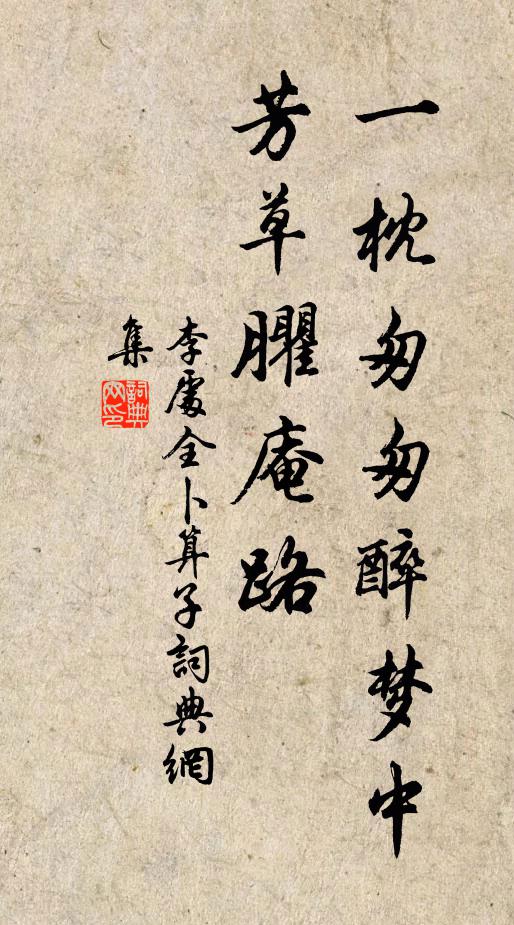 一枕匆匆醉梦中
芳草臞庵路
李處全卜算子詞典網
集
詞典
网印